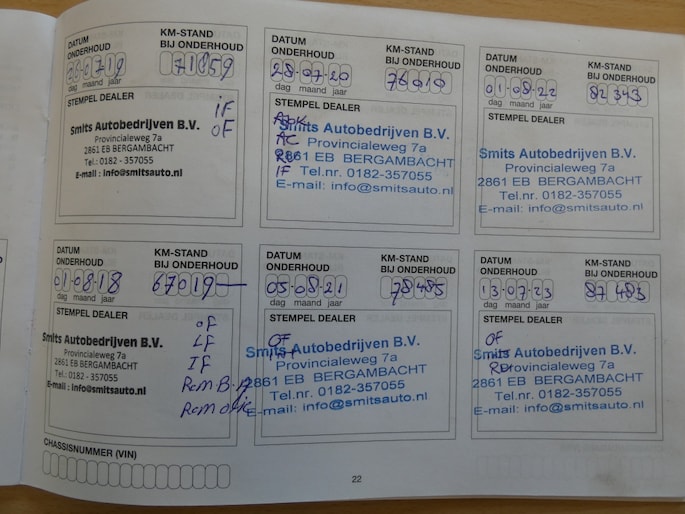 DATUM
ONDERHOUD
KM-STAND
BIJ ONDERHOUD
71859
dag maand jaar
STEMPEL DEALER
iF
oF
Smits Autobedrijven B.V.
Provincialeweg 7a
2861 EB BERGAMBACHT
Tel.: 0182 - 357055
E-mail : info@smitsauto.nl
DATUM
ONDERHOUD
KM-STAND
BIJ ONDERHOUD
28-07-20
76010
dag maand jaar
STEMPEL DEALER
AC
IF
Smits Autobedrijven B.V.
Provincialeweg 7a
2861 EB BERGAMBACHT
Tel.nr. 0182-357055
E-mail: info@smitsauto.nl
DATUM
ONDERHOUD
KM-STAND
BIJ ONDERHOUD
01-08-22
82343
dag maand jaar
STEMPEL DEALER
Smits Autobedrijven B.V.
Provincialeweg 7a
2861 EB BERGAMBACHT
Tel.nr. 0182-357055
E-mail: info@smitsauto.nl
DATUM
ONDERHOUD
KM-STAND
BIJ ONDERHOUD
01-08-18
67019
dag maand jaar
STEMPEL DEALER
oF
LF
IF
Rem
Rem olie
Smits Autobedrijven B.V.
Provincialeweg 7a
2861 EB BERGAMBACHT
Tel.: 0182 - 357055
E-mail : info@smitsauto.nl
DATUM
ONDERHOUD
KM-STAND
BIJ ONDERHOUD
05-08-21
78485
dag maand jaar
STEMPEL DEALER
OF
Smits Autobedrijven B.V.
Provincialeweg 7a
2861 EB BERGAMBACHT
Tel.nr. 0182-357055
E-mail: info@smitsauto.nl
DATUM
ONDERHOUD
KM-STAND
BIJ ONDERHOUD
13-07-23
87483
dag maand jaar
STEMPEL DEALER
OF
Smits Autobedrijven B.V.
Provincialeweg 7a
2861 EB BERGAMBACHT
Tel.nr. 0182-357055
E-mail: info@smitsauto.nl
CHASSISNUMMER (VIN)
22